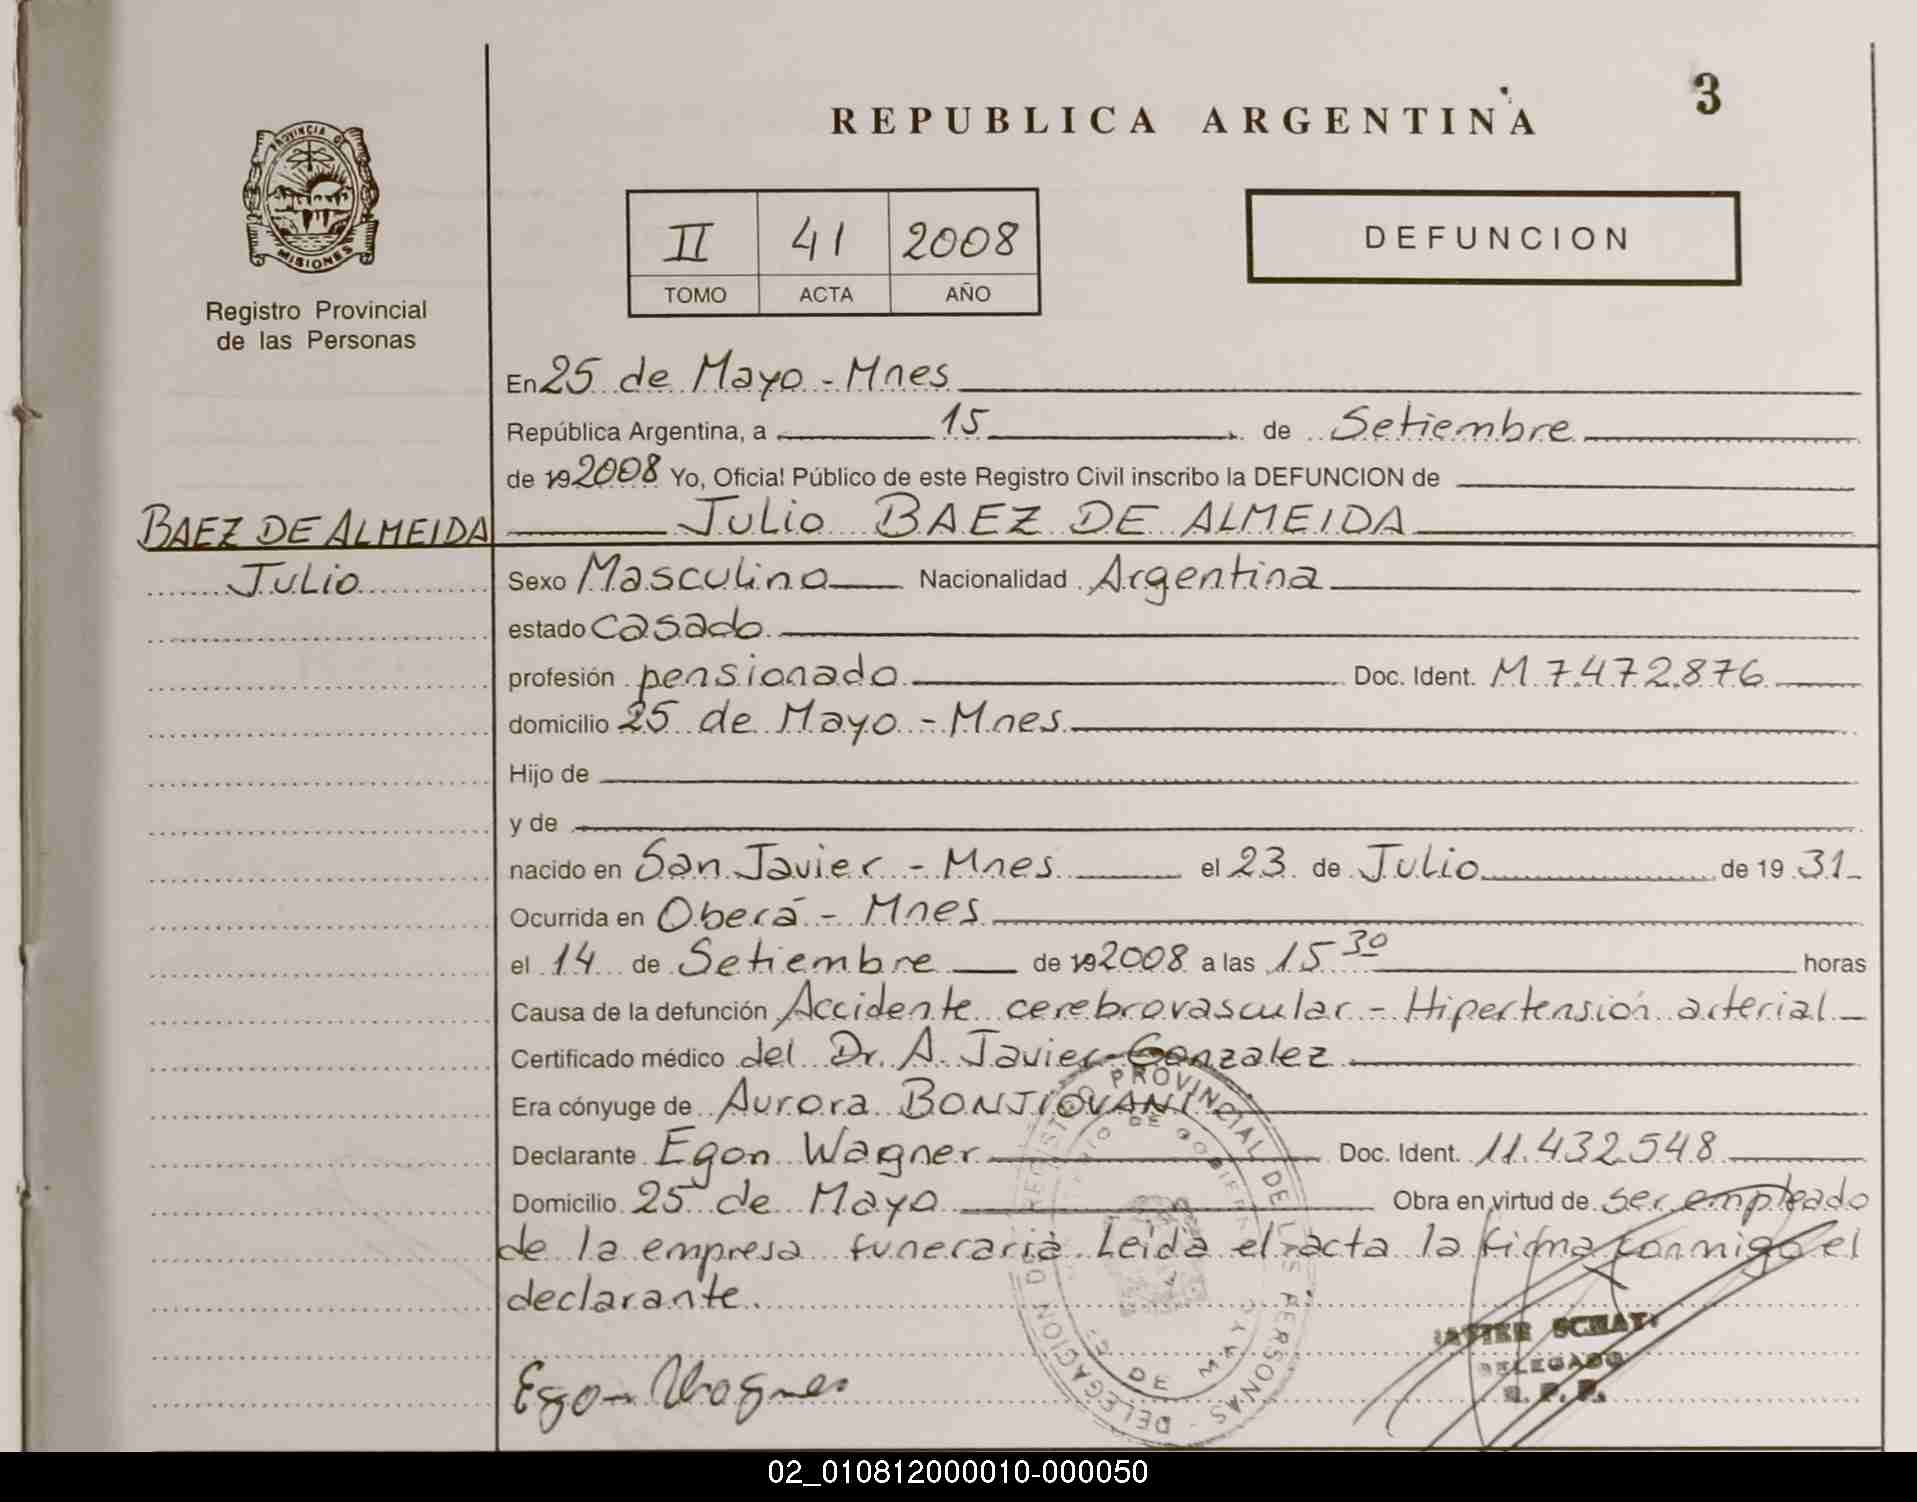 3
REPUBLICA ARGENTINA
PROVINCIA DE
MISIONES
Registro Provincial
de las Personas
II 41 2008
TOMO ACTA AÑO
DEFUNCION
En 25 de Mayo - Mnes
República Argentina, a 15 de Setiembre
de 19 2008 Yo, Oficial Público de este Registro Civil inscribo la DEFUNCION de
BAEZ DE ALMEIDA
Julio BAEZ DE ALMEIDA
Julio
Sexo Masculino Nacionalidad Argentina
estado casado
profesión pensionado Doc. Ident. M 7.472.876
domicilio 25 de Mayo - Mnes
Hijo de
y de
nacido en San Javier - Mnes el 23 de Julio de 19 31
Ocurrida en Oberá - Mnes
el 14 de Setiembre de 19 2008 a las 15 30 horas
Causa de la defunción Accidente cerebrovascular - Hipertensión arterial
Certificado médico del Dr. A. Javier Gonzalez
Era cónyuge de Aurora BONJIOVANI
Declarante Egon Wagner Doc. Ident. 11.432.548
Domicilio 25 de Mayo Obra en virtud de ser empleado
de la empresa funeraria. Leida el acta la firma conmigo el
declarante.
Egon Wagner
DELEGACION DE REGISTRO PROVINCIAL DE LAS PERSONAS
25 DE MAYO
DELEGADO
02_010812000010-000050